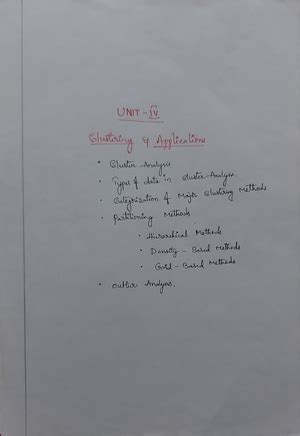 UNIT - IV
Clustering & Applications
• Cluster Analysis
• Types of data in cluster Analysis
• Categorization of Major Clustering Methods
• Partitioning Methods
• Hierarchical Methods
• Density - Based Methods
• Grid - Based Methods
• Outlier Analysis.